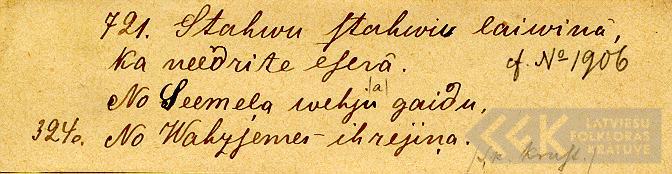 721. Stahwu stahwu laiwinā,
Ka needrite eserā. cf. № 1906
No Seemela wehju (a) gaidu,
3240. No Wahzjemes- ihrejiņa.
LATVIEŠU
FOLKLORAS
KRATUVE